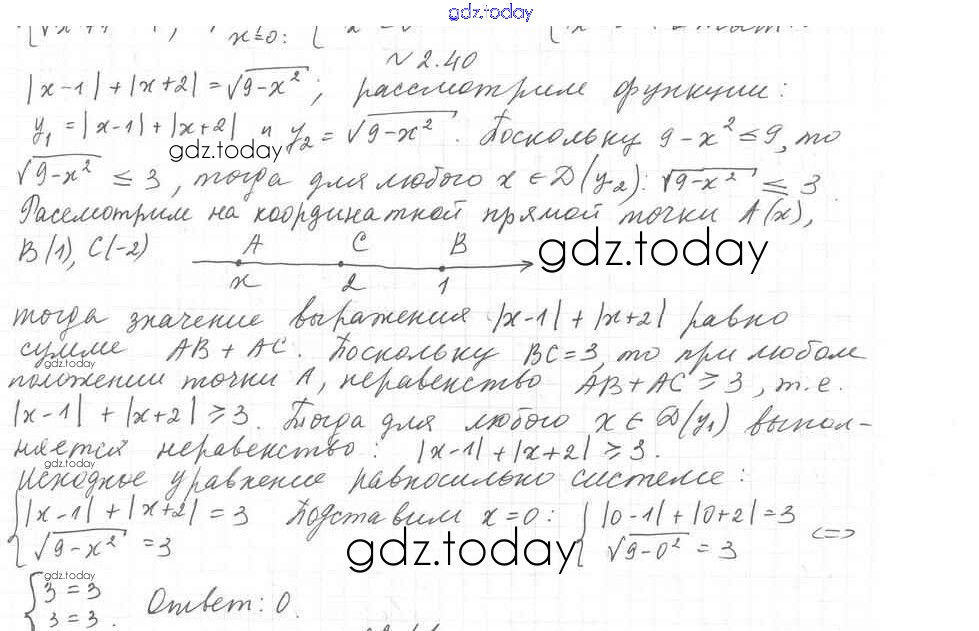 gdz.today
x≤0:
№ 2.40
|x-1|+|x+2|=√9-x²; рассмотрим функции:
y₁=|x-1|+|x+2| и y₂=√9-x². Поскольку 9-x²≤9, то
gdz.today
√9-x² ≤ 3, тогда для любого x∈D(y₂): √9-x² ≤ 3
Рассмотрим на координатной прямой точки A(x),
B(1), C(-2)
A C B
x 2 1
gdz.today
тогда значение выражения |x-1|+|x+2| равно
сумме AB+AC. Поскольку BC=3, то при любом
gdz.today
положении точки A, неравенство AB+AC≥3, т.е.
|x-1|+|x+2|≥3. Тогда для любого x∈D(y₁) выпол-
няется неравенство: |x-1|+|x+2|≥3.
gdz.today
Исходное уравнение равносильно системе:
{|x-1|+|x+2|=3 Подставим x=0: {|0-1|+|0+2|=3
√9-x²=3 √9-0²=3 <=>
gdz.today
gdz.today
{3=3
3=3. Ответ: 0.